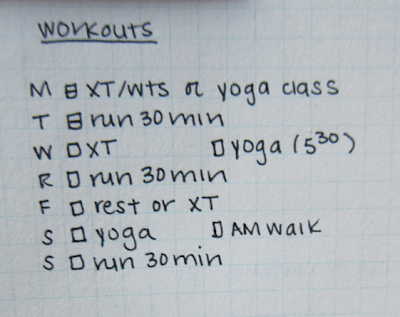 workouts
M ⊟ XT/wts or yoga class
T ⊟ run 30 min
W □ XT □ yoga (5³⁰)
R □ run 30 min
F □ rest or XT
S □ yoga □ AM walk
S □ run 30 min